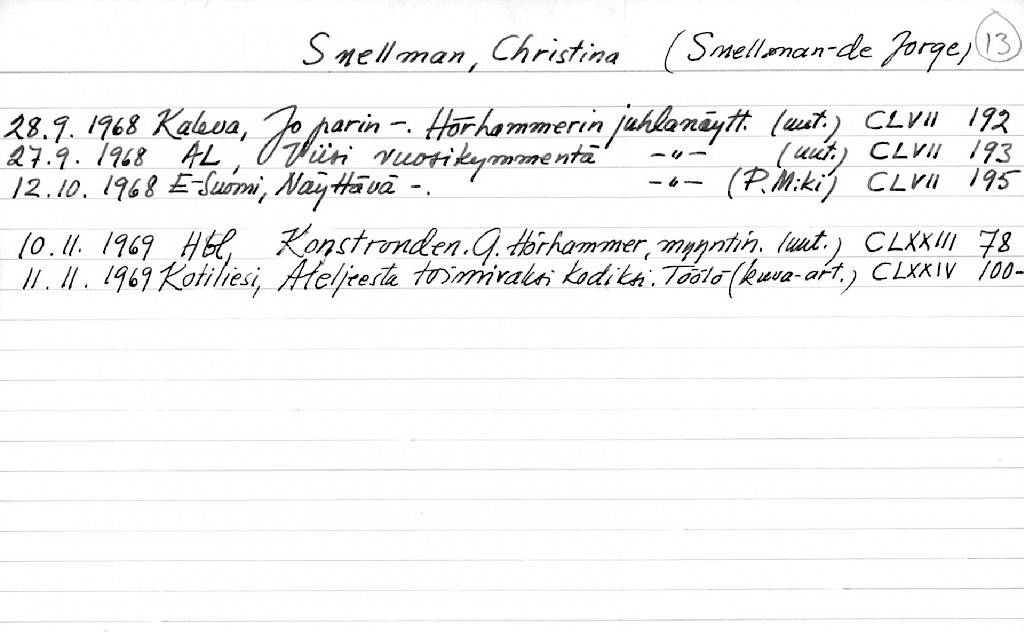 Snellman, Christina (Snellman-de Jorge) 13
28.9. 1968 Kaleva, Jo parin -. Hörhammerin juhlanäytt. (uut.) CLVII 192
27.9. 1968 AL, Viisi vuosikymmentä -"- (uut.) CLVII 193
12.10. 1968 E-Suomi, Näyttävä -. -"- (P. Miki) CLVII 195
10.11. 1969 Hbl, Konstronden. G. Hörhammer, myyntin. (uut.) CLXXIII 78
11.11. 1969 Kotiliesi, Ateljeesta toimivaksi kodiksi. Töölö (kuva-art.) CLXXIV 100-